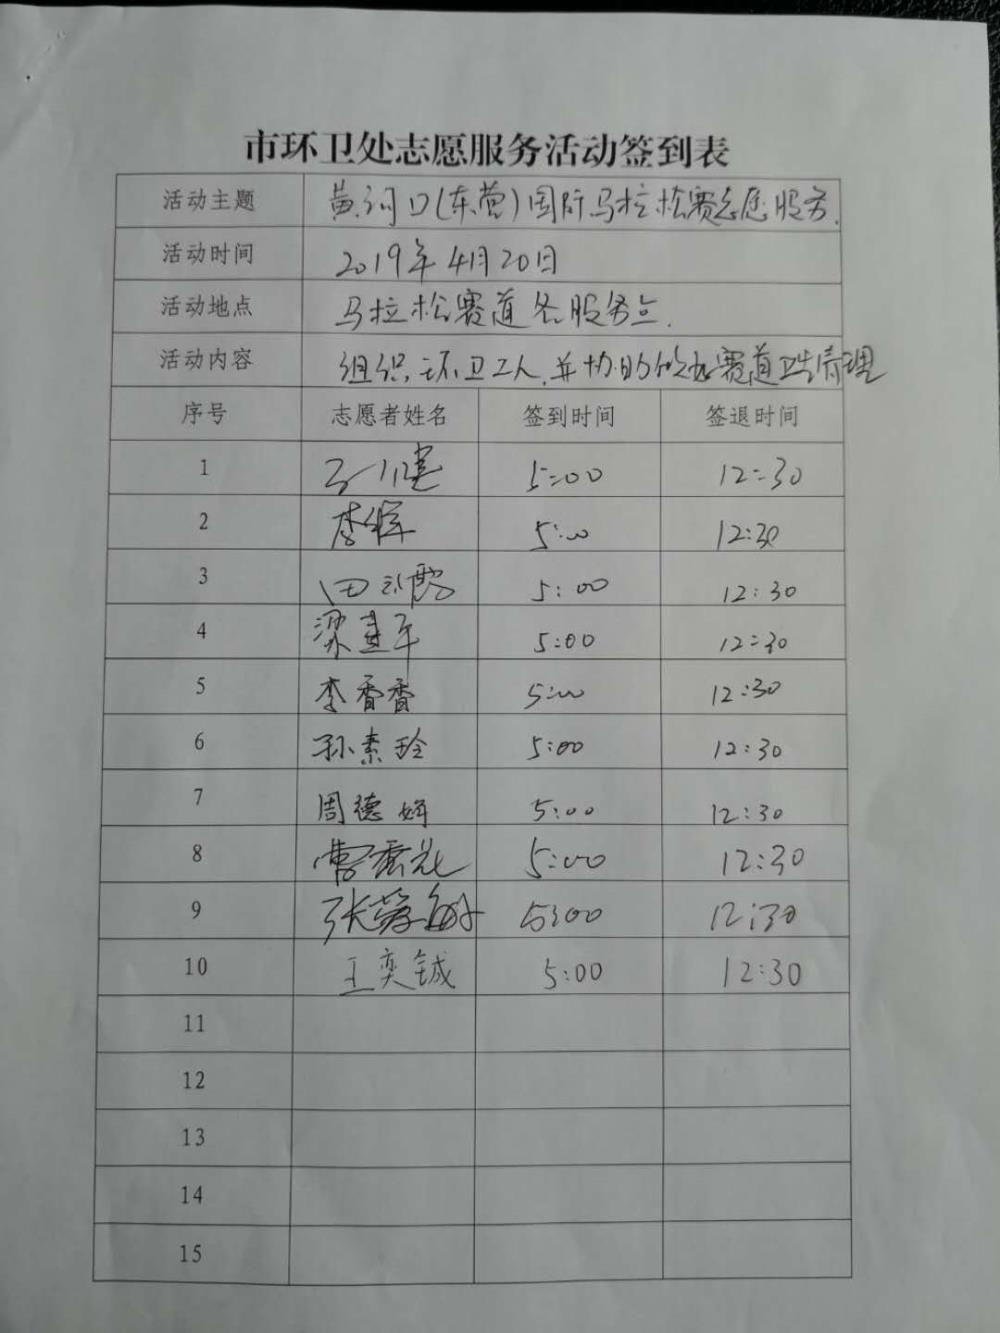 市环卫处志愿服务活动签到表
活动主题 黄河口(东营)国际马拉松赛志愿服务.
活动时间 2019年4月20日
活动地点 马拉松赛道各服务点.
活动内容 组织环卫工人,并协助 赛道卫生清理
序号 志愿者姓名 签到时间 签退时间
1 5:00 12:30
2 李辉 5:00 12:30
3 田 5:00 12:30
4 梁建军 5:00 12:30
5 李香香 5:00 12:30
6 孙素玲 5:00 12:30
7 周德娟 5:00 12:30
8 曹 5:00 12:30
9 张 敏 5:00 12:30
10 王奕铖 5:00 12:30
11
12
13
14
15